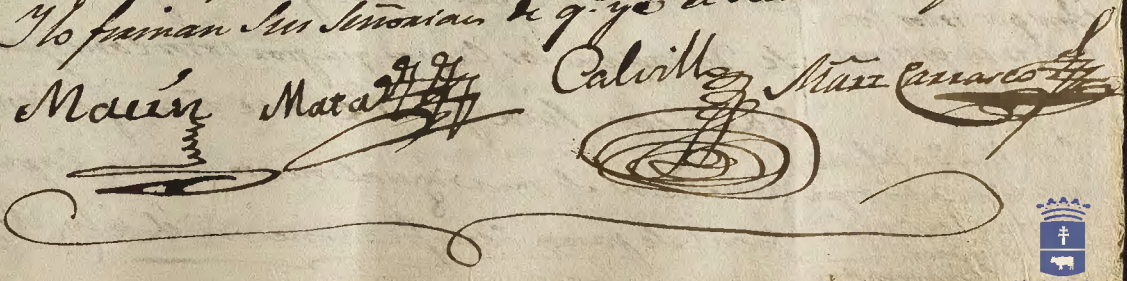 Y lo firman sus Señorias de q.e yo el
Macín Mata Calvillo Mãrz Carrasco